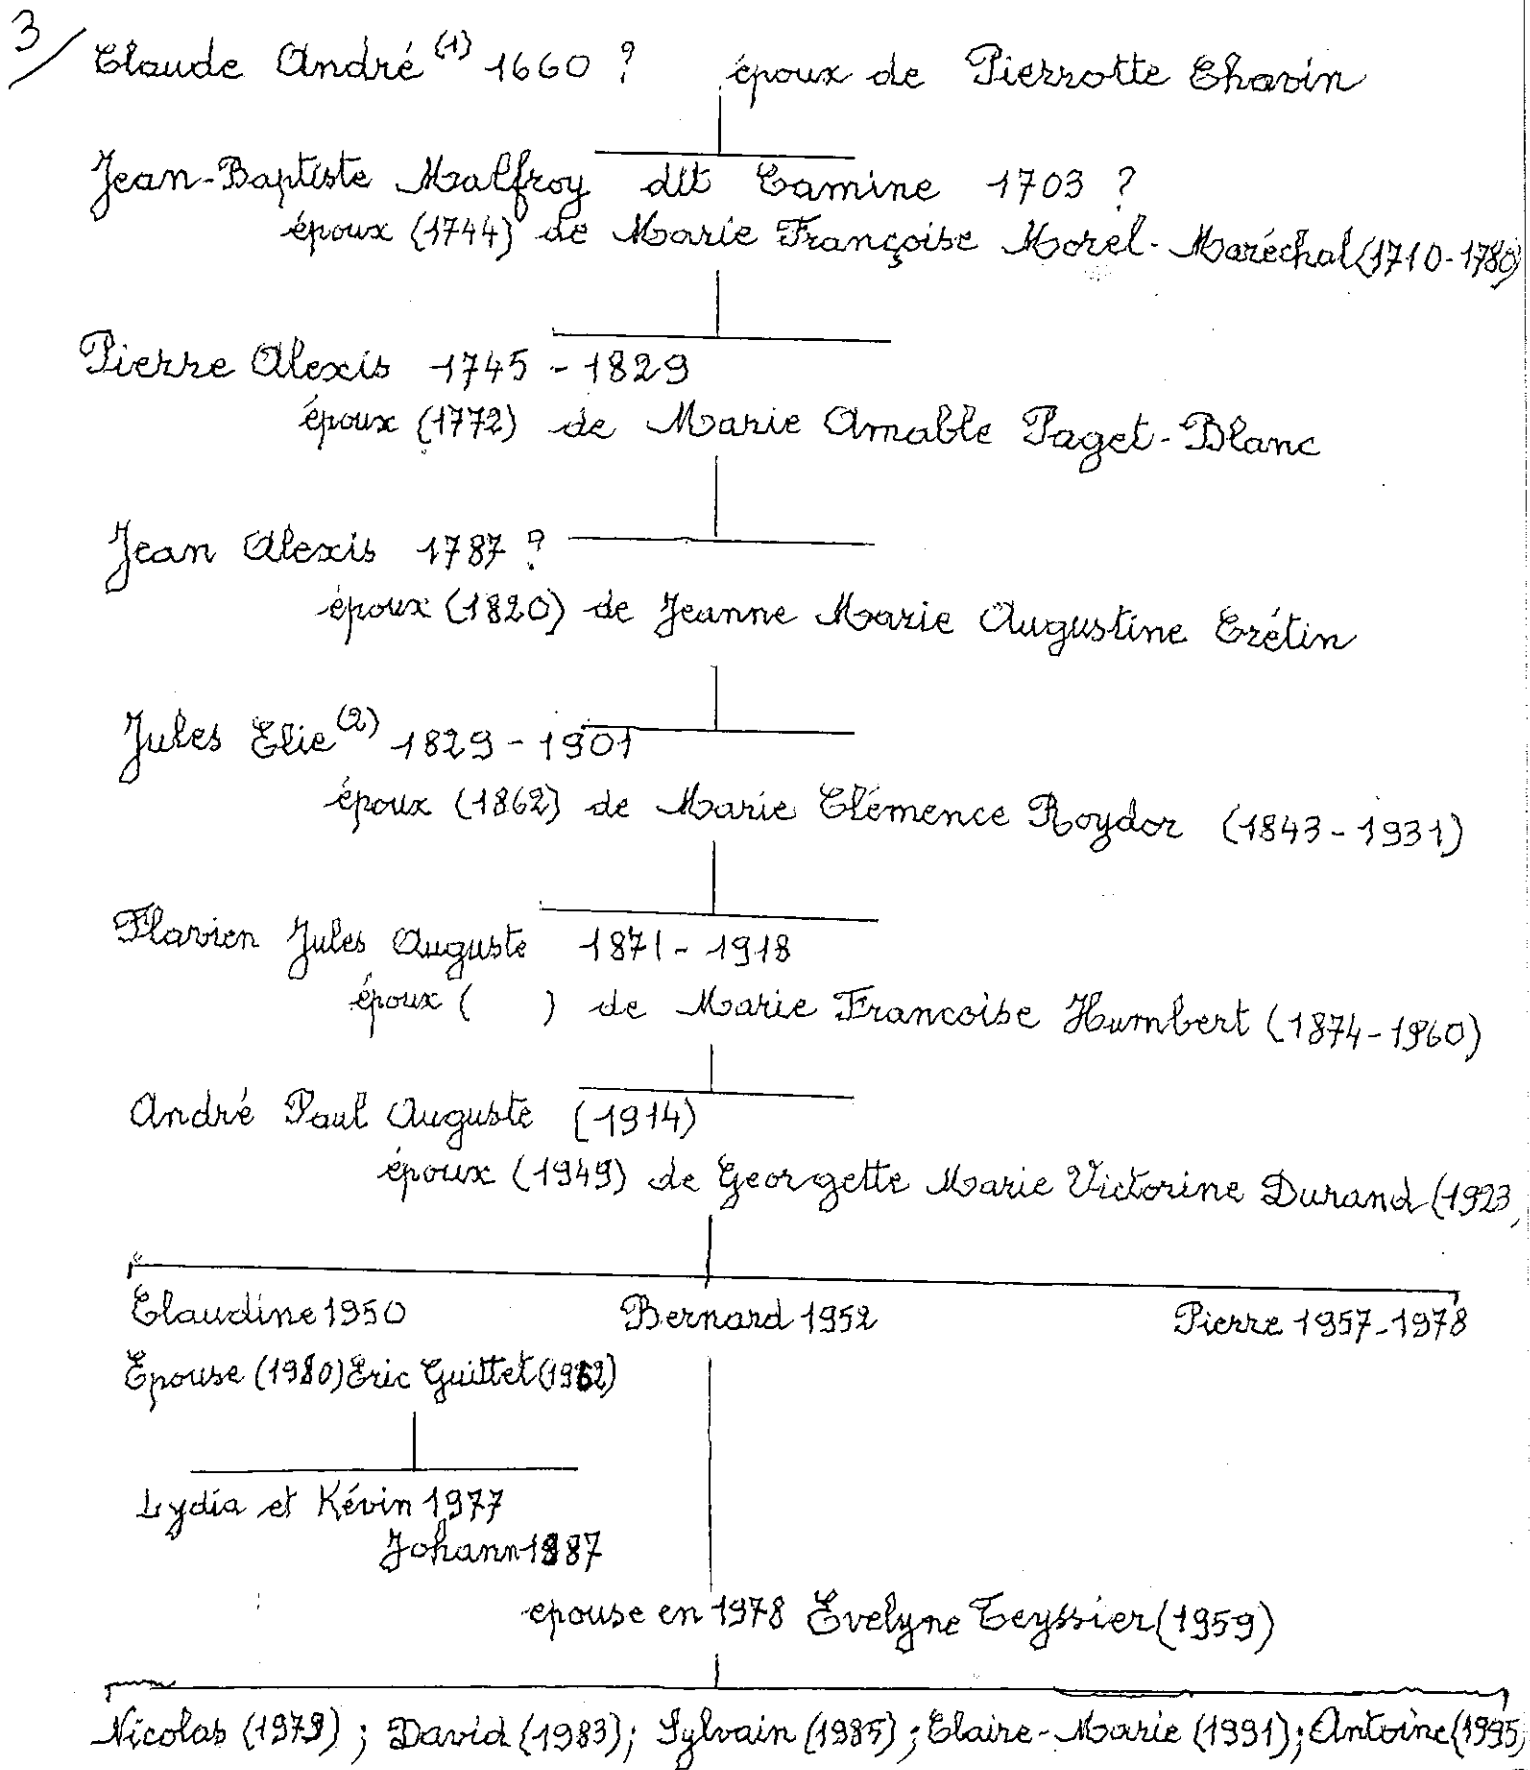 3/ Claude André (1) 1660 ? époux de Pierrotte Chavin
Jean-Baptiste Malfroy dit Camine 1703 ?
époux (1744) de Marie Françoise Morel-Maréchal (1710-1780)
Pierre Alexis 1745 - 1829
époux (1772) de Marie Amable Paget-Blanc
Jean Alexis 1787 ?
époux (1820) de Jeanne Marie Augustine Crétin
Jules Elie (2) 1829 - 1901
époux (1862) de Marie Clémence Roydor (1843 - 1931)
Flavien Jules Auguste 1871 - 1918
époux ( ) de Marie Francoise Humbert (1874-1960)
André Paul Auguste (1914)
époux (1949) de Georgette Marie Victorine Durand (1923
Claudine 1950 Bernard 1952 Pierre 1957-1978
Epouse (1980) Eric Guittet
Lydia et Kévin 1977
Johann 1987
epouse en 1978 Evelyne Teyssier (1959)
Nicolas (1979) ; David (1983) ; Sylvain (1985) ; Claire-Marie (1991) ; Antoine (1995)